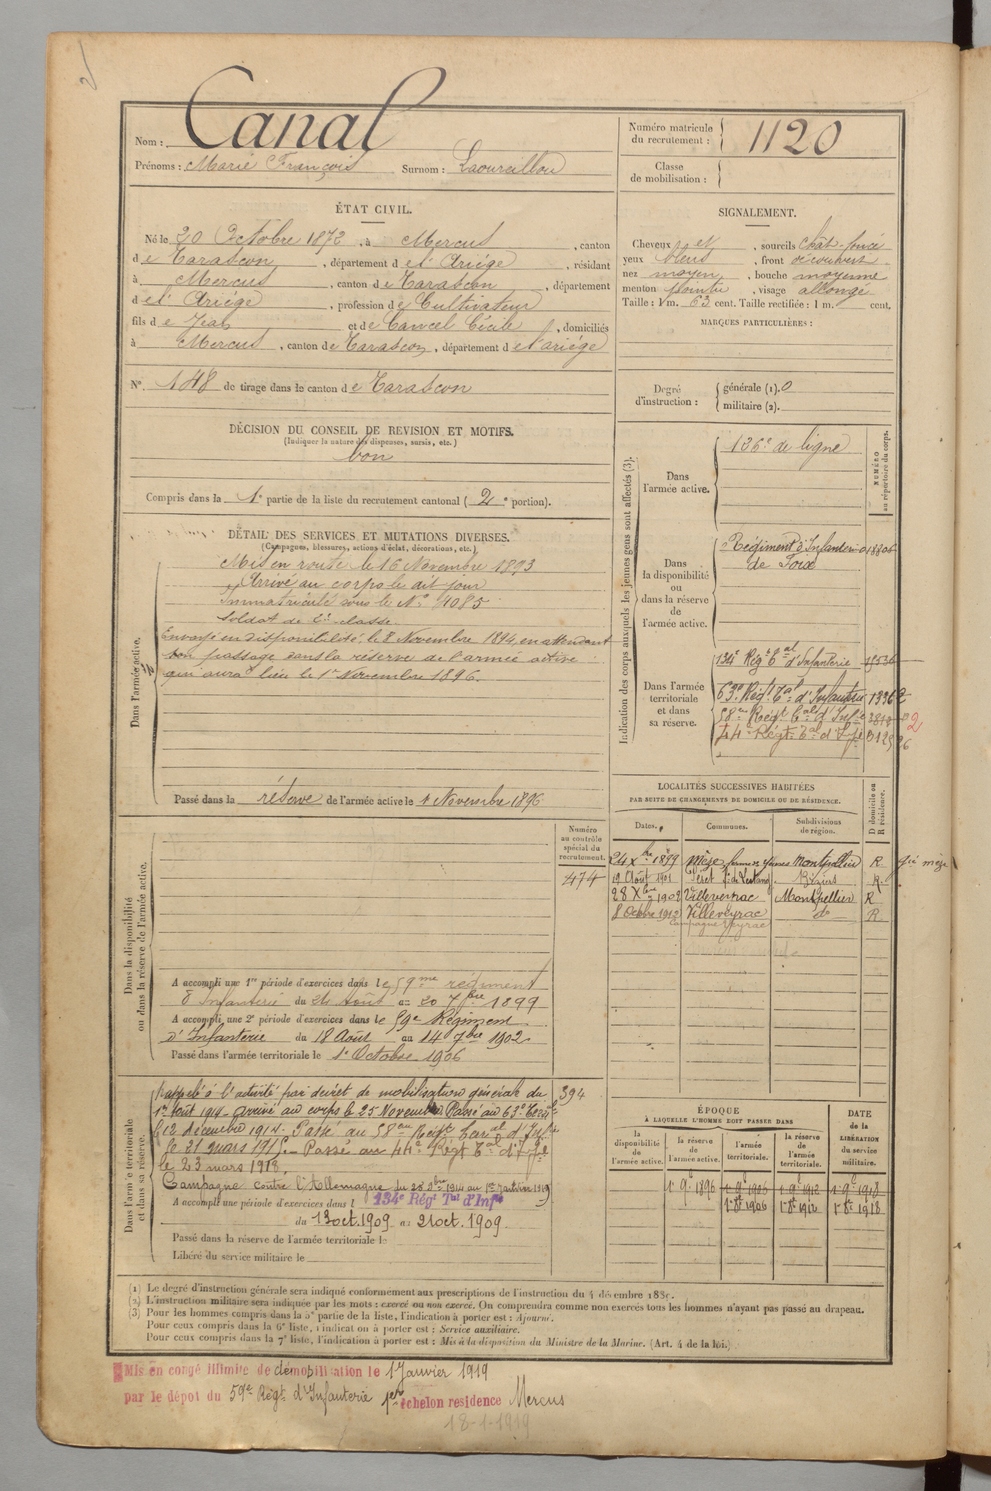 Nom : Canal
Prénoms : Marie François Surnom :
Numéro matricule du recrutement : 1120
Classe de mobilisation :
ÉTAT CIVIL.
Né le 20 Octobre 1872, à Mercus, canton
de Tarascon, département de l'Ariége, résidant
à Mercus, canton de Tarascon, département
de l'Ariége, profession de Cultivateur
fils de Jean et de Cancel Cécile, domiciliés
à Mercus, canton de Tarascon, département de l'ariége
N° 148 de tirage dans le canton de Tarascon
DÉCISION DU CONSEIL DE REVISION ET MOTIFS.
(Indiquer la nature des dispenses, sursis, etc.)
bon
Compris dans la 1e partie de la liste du recrutement cantonal (2e portion).
SIGNALEMENT.
Cheveux et, sourcils chat-foncé
yeux bleus, front découvert
nez moyen, bouche moyenne
menton pointu, visage allongé
Taille : 1 m. 63 cent. Taille rectifiée : 1 m. cent.
MARQUES PARTICULIÈRES :
Degré d'instruction : générale (1). 0
militaire (2).
DÉTAIL DES SERVICES ET MUTATIONS DIVERSES.
(Campagnes, blessures, actions d'éclat, décorations, etc.)
Dans l'armée active.
Mis en route le 16 Novembre 1893
Arrivé au corps le dit jour
Immatriculé sous le N° 4085
Soldat de 2e classe
Envoyé en disponibilité le 8 Novembre 1894, en attendant
son passage dans la réserve de l'armée active
qui aura lieu le 1er Novembre 1896.
Passé dans la réserve de l'armée active le 1 Novembre 1896
Indication des corps auxquels les jeunes gens sont affectés (3).
NUMÉRO au répertoire du corps.
Dans l'armée active.
136e de ligne
Dans la disponibilité ou dans la réserve de l'armée active.
Régiment d'Infanterie
de Foix
Dans l'armée territoriale et dans sa réserve.
134e Régt Tal d'Infanterie
63e Régt Tal d'Infanterie 13362
58eme Régt Tal d'Infie
44e Régt Tal d'Ife
LOCALITÉS SUCCESSIVES HABITÉES
PAR SUITE DE CHANGEMENTS DE DOMICILE OU DE RÉSIDENCE.
Dates. Communes. Subdivisions de région. D domicile ou R résidence.
24 Xbre 1899 Mèze Montpellier R
19 Août 1901 Béziers R
28 Xbre 1902 Villeveyrac Montpellier R
8 Octbre 1912 Villeveyrac do R
Campagne Veyrac
Dans la disponibilité ou dans la réserve de l'armée active.
Numéro au contrôle spécial du recrutement.
474
A accompli une 1re période d'exercices dans le 59me régiment
d'Infanterie du 24 Août au 20 7bre 1899
A accompli une 2e période d'exercices dans le 59e Régiment
d'Infanterie du 18 Août au 14 7bre 1902
Passé dans l'armée territoriale le 1er Octobre 1906
Dans l'armée territoriale et dans sa réserve.
394
Rappelé à l'activité par décret de mobilisation générale du
1er Août 1914 arrivé au corps le 25 Novembre Passé au 63e Territal
le 12 décembre 1914. Passé au 58eme Régt Taral d'Infie
le 21 mars 1915. Passé au 44e Régt Tal d'Ife
le 23 mars 1918.
Campagne contre l'Allemagne du 25 9bre 1914 au 1er janvier 1919
A accompli une période d'exercices dans l 134e Régt Tal d'Infie
du 13 oct. 1909 au 21 oct. 1909.
Passé dans la réserve de l'armée territoriale le
Libéré du service militaire le
ÉPOQUE
À LAQUELLE L'HOMME DOIT PASSER DANS
la disponibilité de l'armée active. la réserve de l'armée active. l'armée territoriale. la réserve de l'armée territoriale.
DATE de la LIBÉRATION du service militaire.
1er 9e 1896 1er 9e 1906 1er 9e 1912 1er 9e 1918
1er 8e 1906 1er 8e 1912 1er 8e 1918
(1) Le degré d'instruction générale sera indiqué conformément aux prescriptions de l'instruction du 4 décembre 1889.
(2) L'instruction militaire sera indiquée par les mots : exercé ou non exercé. On comprendra comme non exercés tous les hommes n'ayant pas passé au drapeau.
(3) Pour les hommes compris dans la 5e partie de la liste, l'indication à porter est : Ajourné.
Pour ceux compris dans la 6e liste, l'indication à porter est : Service auxiliaire.
Pour ceux compris dans la 7e liste, l'indication à porter est : Mis à la disposition du Ministre de la Marine. (Art. 4 de la loi.)
Mis en congé illimité de démobilisation le 1 Janvier 1919
par le dépot du 59e Régt d'Infanterie 1er échelon residence Mercus
18-1-1919